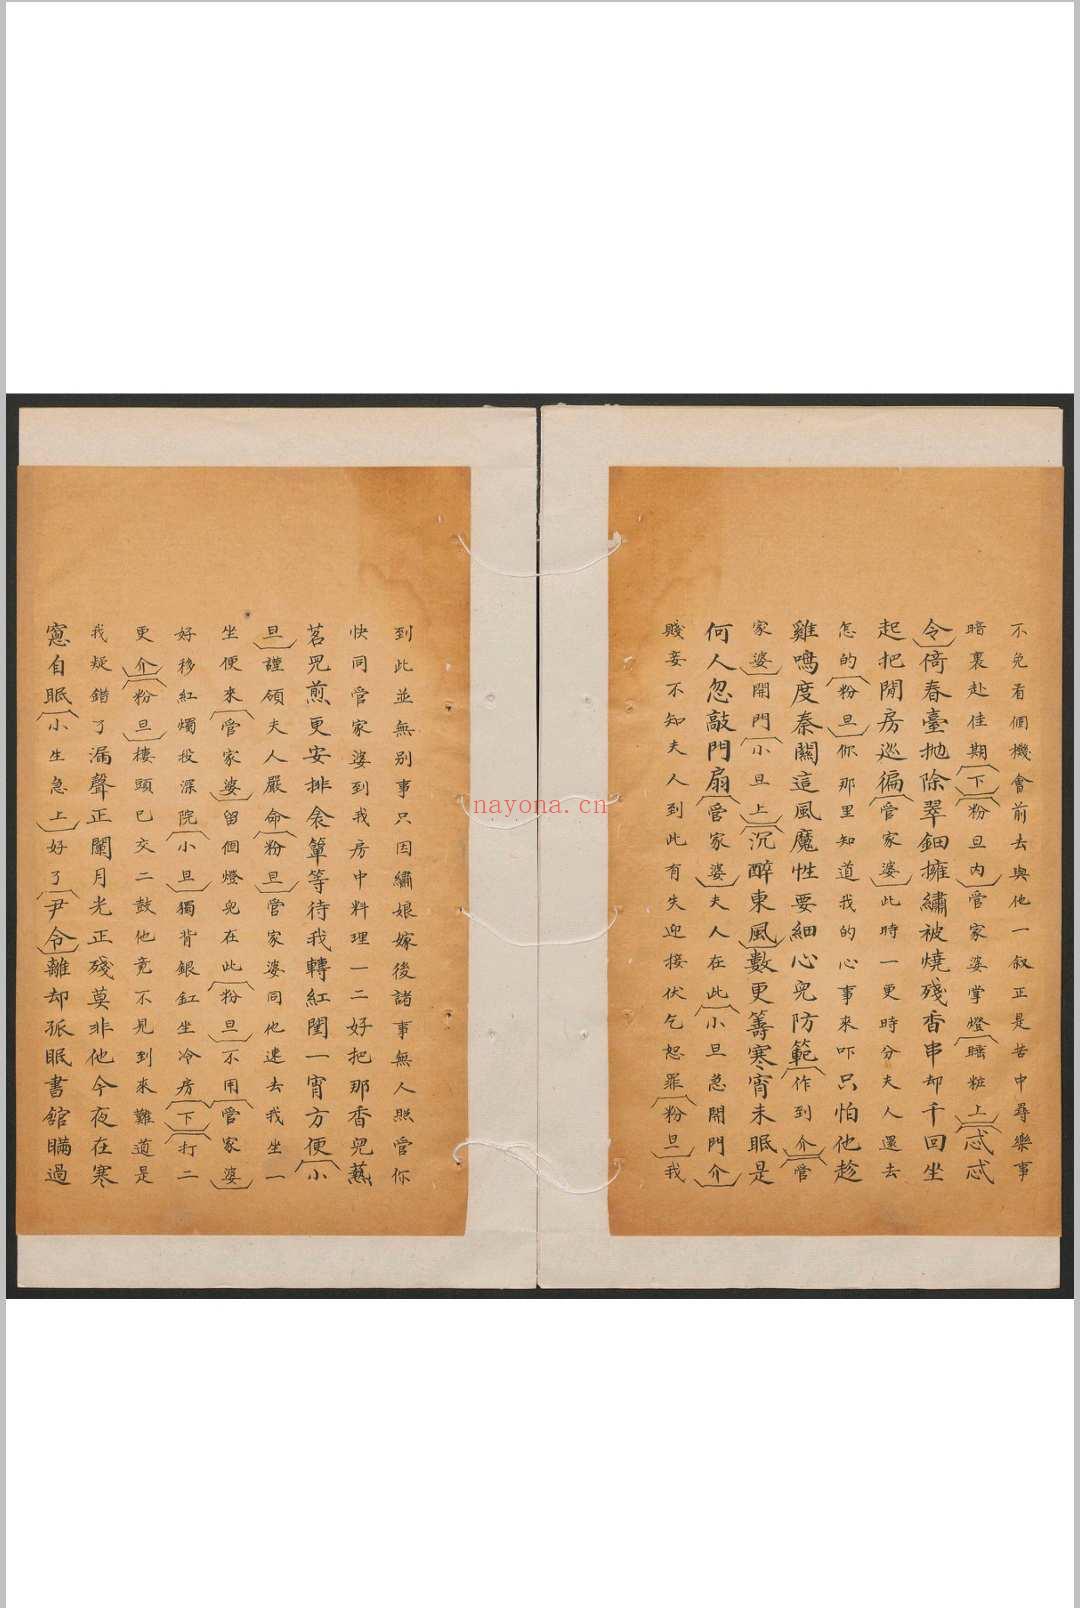 不免看個機會前去與他一叙正是苦中尋樂事
暗裏赴佳期(下)(粉旦内)管家婆掌燈(睡粧上)(忒忒
令)倚春臺抛除翠鈿擁繡被燒殘香串却千回坐
起把閒房巡徧(管家婆)此時一更時分夫人還去
怎的(粉旦)你那里知道我的心事來吓只怕他趁
雞鳴度秦關這風魔性要細心兒防範(作到介)(管
家婆)開門(小旦上)(沉醉東風)數更籌寒宵未眠是
何人忽敲門扇(管家婆)夫人在此(小旦急開門介)
賤妾不知夫人到此有失迎接伏乞恕罪(粉旦)我
到此並無别事只因繡娘嫁後諸事無人照管你
快同管家婆到我房中料理一二好把那香兒爇
茗兒煎更安排衾簟等待我轉紅閨一宵方便(小
旦)謹領夫人嚴命(粉旦)管家婆同他進去我坐一
坐便來(管家婆)留個燈兒在此(粉旦)不用(管家婆)
好移紅燭投深院(小旦)獨背銀釭坐冷房(下)(打二
更介)(粉旦)樓頭已交二鼓他竟不見到來難道是
我疑錯了漏聲正闌月光正殘莫非他今夜在寒
窻自眠(小生急上)好了(尹令)離却孤眠書舘瞞過
nayona.cn